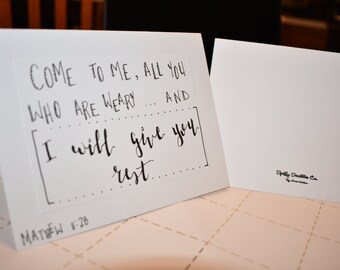 COME TO ME, ALL YOU
WHO ARE WEARY ... AND
I will give you
rest
MATTHEW 11:28
Co.